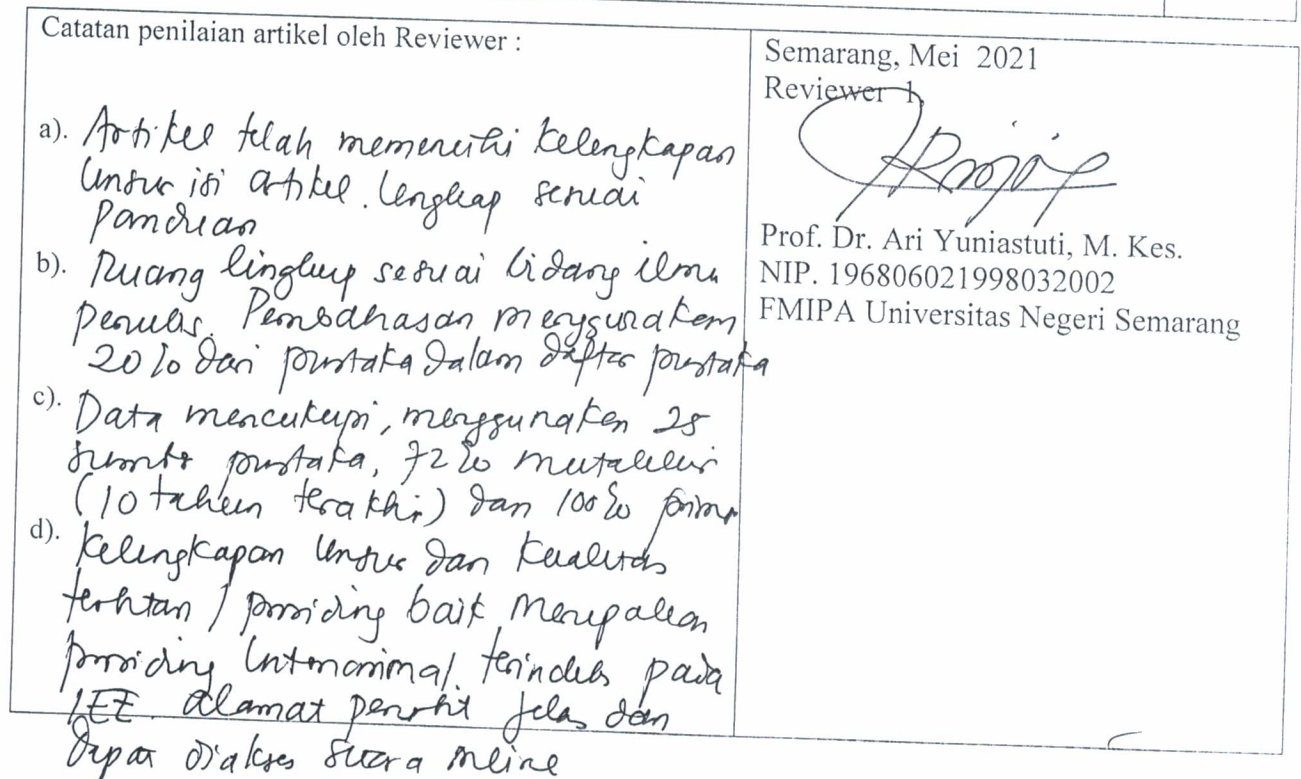 Catatan penilaian artikel oleh Reviewer :
a). Artikel telah memenuhi kelengkapan
unsur isi artikel. lengkap sesuai
panduan
b). Ruang lingkup sesuai bidang ilmu
penulis. Pembahasan menggunakan
20% dari pustaka dalam daftar pustaka
c). Data mencukupi, menggunakan 25
sumber pustaka, 72% mutakhir
(10 tahun terakhir) dan 100% primer
d). Kelengkapan unsur dan kualitas
terbitan / prosiding baik, merupakan
prosiding Internasional terindeks pada
IEE. Alamat penerbit jelas dan
dapat diakses secara online
Semarang, Mei 2021
Reviewer 1,
Prof. Dr. Ari Yuniastuti, M. Kes.
NIP. 196806021998032002
FMIPA Universitas Negeri Semarang